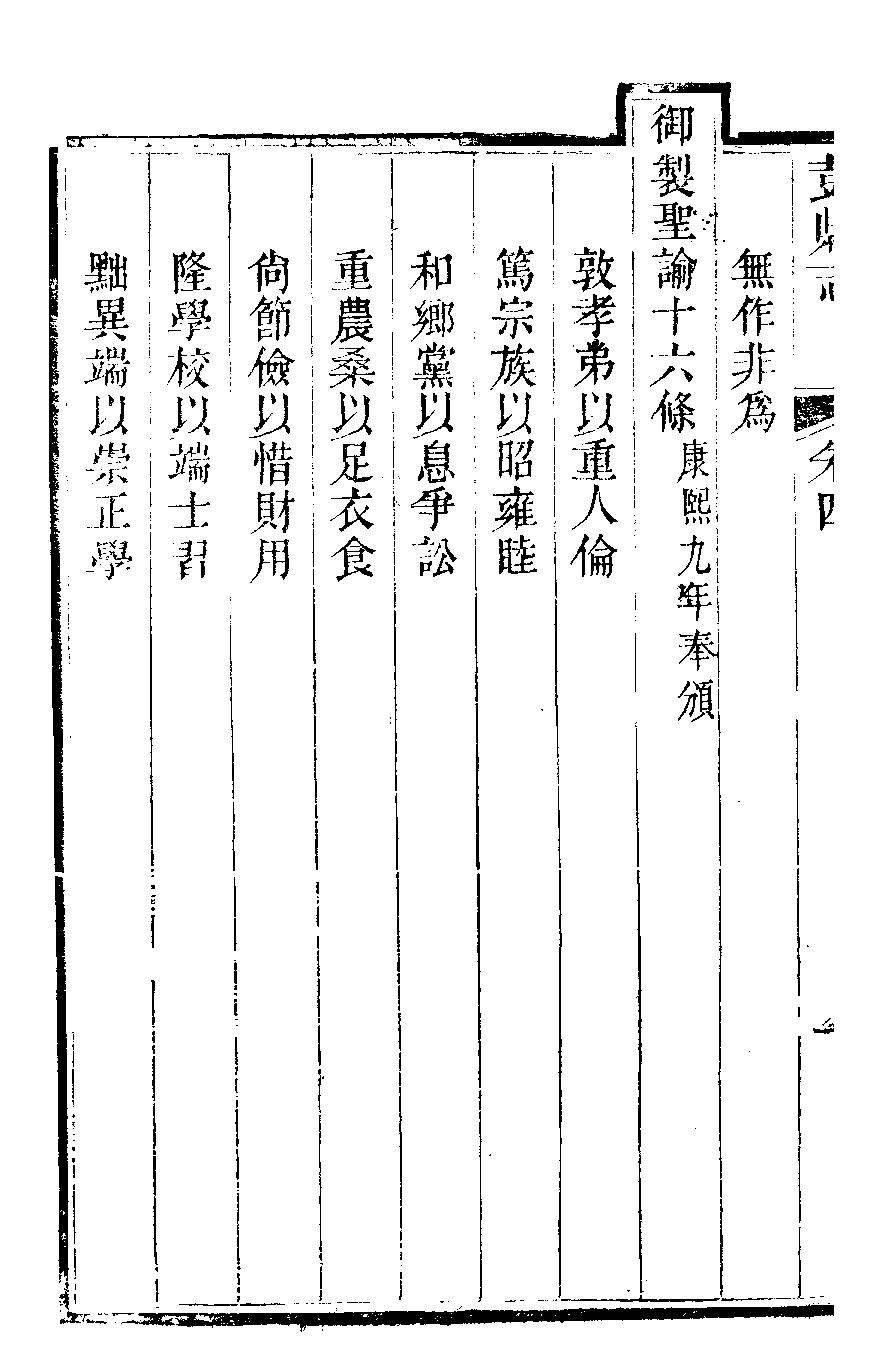 彭縣志 卷四
無作非爲
御製聖諭十六條康熙九年奉頒
敦孝弟以重人倫
篤宗族以昭雍睦
和鄉黨以息爭訟
重農桑以足衣食
尙節儉以惜財用
隆學校以端士習
黜異端以崇正學